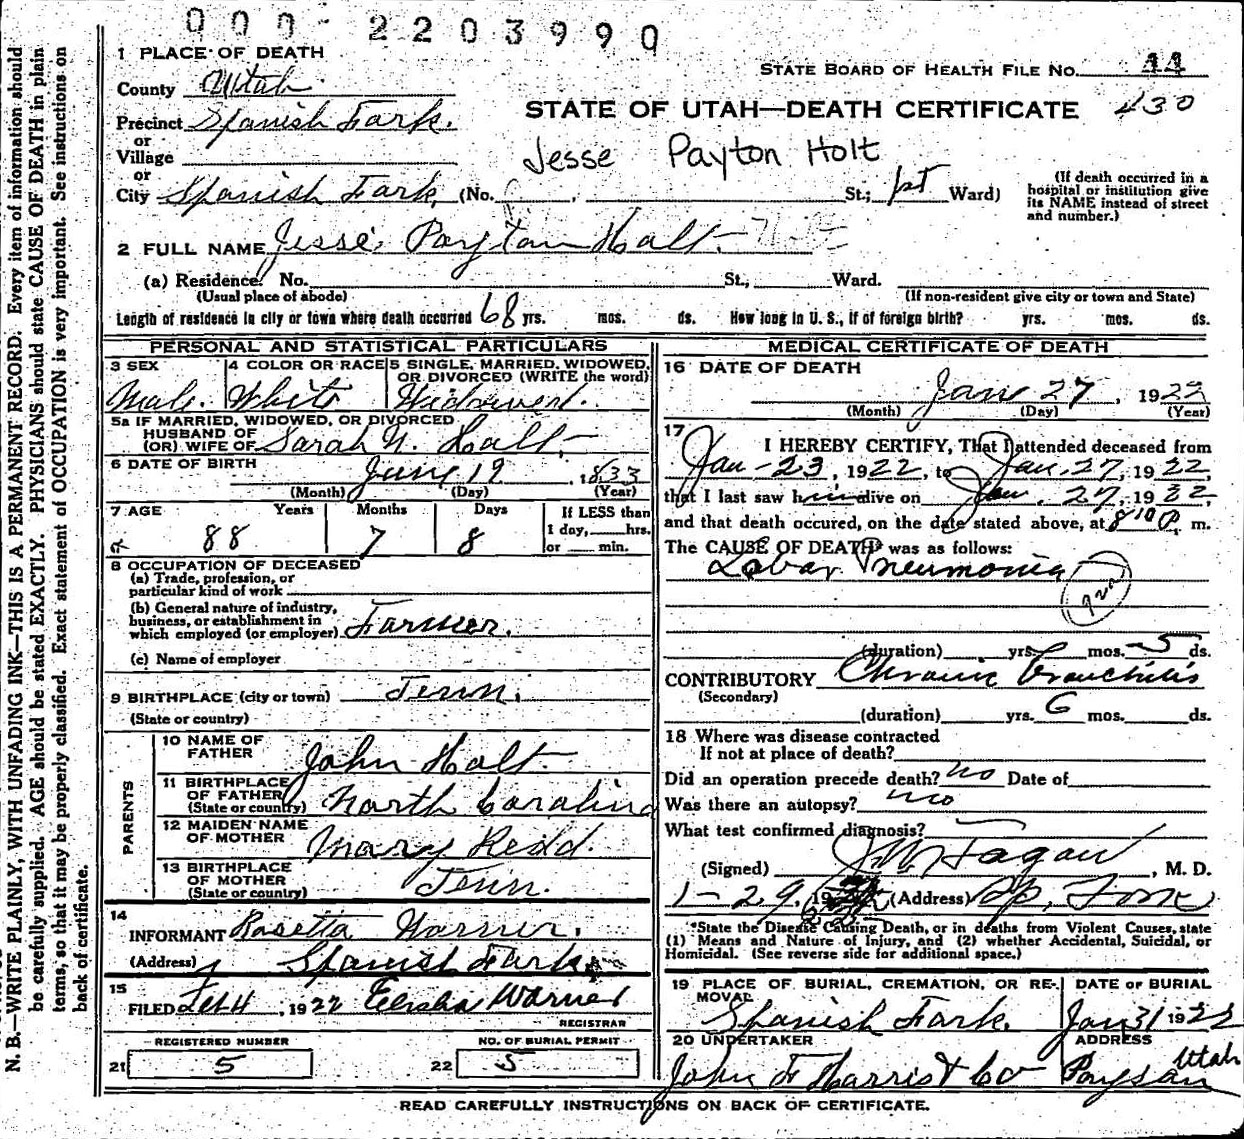 000-2203990
1 PLACE OF DEATH
STATE BOARD OF HEALTH FILE NO. 44
County Utah
STATE OF UTAH—DEATH CERTIFICATE 430
Precinct Spanish Fork.
or
Village
Jesse Payton Holt
or
City Spanish Fork, (No. , St.; 1st Ward)
(If death occurred in a
hospital or institution give
its NAME instead of street
and number.)
2 FULL NAME Jesse Payton Holt
(a) Residence. No. St., Ward.
(Usual place of abode) (If non-resident give city or town and State)
Length of residence in city or town where death occurred 68 yrs. mos. ds. How long in U. S., if of foreign birth? yrs. mos. ds.
PERSONAL AND STATISTICAL PARTICULARS
3 SEX 4 COLOR OR RACE 5 SINGLE, MARRIED, WIDOWED,
OR DIVORCED (WRITE the word)
Male. White Widowed.
5a IF MARRIED, WIDOWED, OR DIVORCED
HUSBAND OF
(OR) WIFE OF Sarah N. Holt
6 DATE OF BIRTH June 19, 1833
(Month) (Day) (Year)
7 AGE Years Months Days If LESS than
1 day, hrs.
88 7 8 or min.
8 OCCUPATION OF DECEASED
(a) Trade, profession, or
particular kind of work
(b) General nature of industry,
business, or establishment in
which employed (or employer) Farmer.
(c) Name of employer
9 BIRTHPLACE (city or town) Tenn.
(State or country)
PARENTS
10 NAME OF
FATHER John Holt.
11 BIRTHPLACE
OF FATHER
(State or country) North Carolina
12 MAIDEN NAME
OF MOTHER Mary Redd.
13 BIRTHPLACE
OF MOTHER
(State or country) Tenn.
14
INFORMANT Rosetta Warner.
(Address) Spanish Fork
15
FILED Feb 4, 1922 Elisha Warner
REGISTRAR
REGISTERED NUMBER NO. OF BURIAL PERMIT
21 5 22 5
MEDICAL CERTIFICATE OF DEATH
16 DATE OF DEATH
Jan 27, 1922
(Month) (Day) (Year)
17
I HEREBY CERTIFY, That I attended deceased from
Jan-23, 1922, to Jan. 27, 1922,
that I last saw him alive on Jan. 27, 1922
and that death occured, on the date stated above, at 8 10 P. m.
The CAUSE OF DEATH* was as follows:
Lobar Pneumonia
(duration) yrs. mos. 5 ds.
CONTRIBUTORY Chronic Bronchitis
(Secondary)
(duration) yrs. 6 mos. ds.
18 Where was disease contracted
If not at place of death?
Did an operation precede death? no Date of
Was there an autopsy? no
What test confirmed diagnosis?
(Signed) J. W. Hagan, M. D.
1-29, 19 (Address) Sp. Fork
*State the Disease Causing Death, or in deaths from Violent Causes, state
(1) Means and Nature of Injury, and (2) whether Accidental, Suicidal, or
Homicidal. (See reverse side for additional space.)
19 PLACE OF BURIAL, CREMATION, OR RE- DATE OF BURIAL
MOVAL
Spanish Fork. Jan 31 1922
20 UNDERTAKER ADDRESS
John F Harris & Co Payson Utah
READ CAREFULLY INSTRUCTIONS ON BACK OF CERTIFICATE.
N. B.—WRITE PLAINLY, WITH UNFADING INK—THIS IS A PERMANENT RECORD. Every item of information should
be carefully supplied. AGE should be stated EXACTLY. PHYSICIANS should state CAUSE OF DEATH in plain
terms, so that it may be properly classified. Exact statement of OCCUPATION is very important. See instructions on
back of certificate.